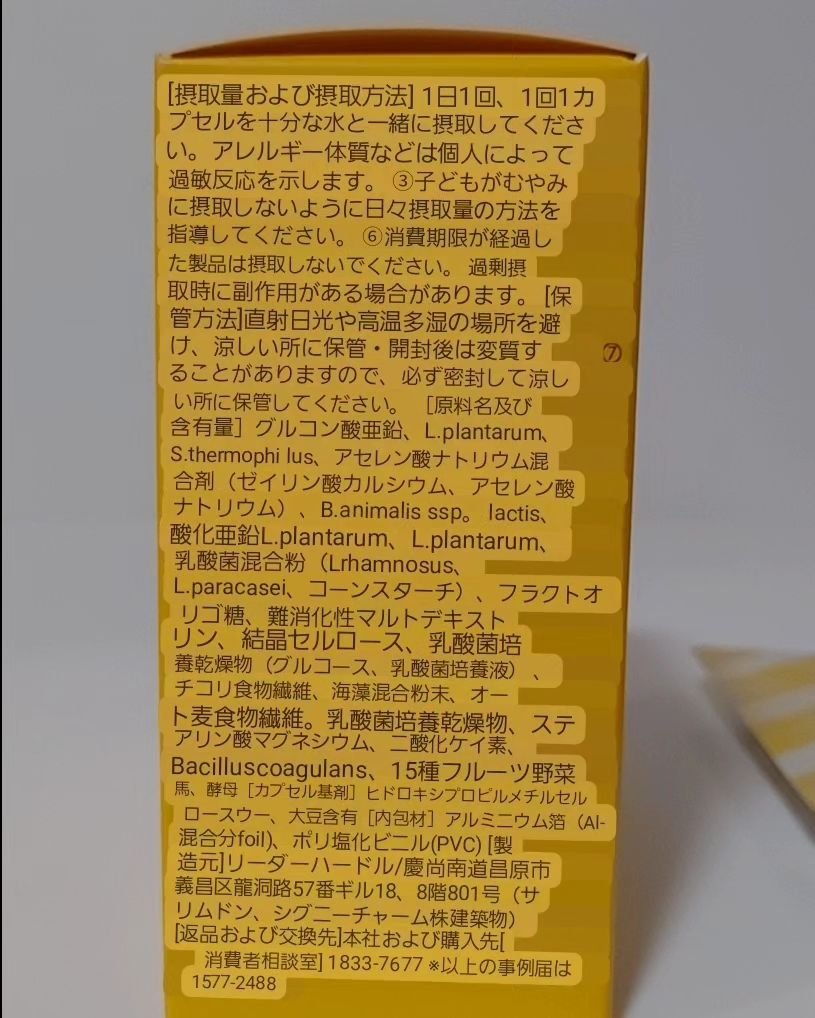 [摂取量および摂取方法] 1日1回、1回1カ
プセルを十分な水と一緒に摂取してくださ
い。アレルギー体質などは個人によって
過敏反応を示します。 ③子どもがむやみ
に摂取しないように日々摂取量の方法を
指導してください。 ⑥消費期限が経過し
た製品は摂取しないでください。 過剰摂
取時に副作用がある場合があります。 [保
管方法]直射日光や高温多湿の場所を避
け、涼しい所に保管・開封後は変質す
⑦
ることがありますので、必ず密封して涼し
い所に保管してください。 ［原料名及び
含有量］グルコン酸亜鉛、L.plantarum、
S.thermophi lus、アセレン酸ナトリウム混
合剤（ゼイリン酸カルシウム、アセレン酸
ナトリウム）、B.animalis ssp。 lactis、
酸化亜鉛L.plantarum、L.plantarum、
乳酸菌混合粉（Lrhamnosus、
L.paracasei、コーンスターチ）、フラクトオ
リゴ糖、難消化性マルトデキスト
リン、結晶セルロース、乳酸菌培
養乾燥物（グルコース、乳酸菌培養液）、
チコリ食物繊維、海藻混合粉末、オー
ト麦食物繊維。乳酸菌培養乾燥物、ステ
アリン酸マグネシウム、二酸化ケイ素、
Bacilluscoagulans、15種フルーツ野菜
馬、酵母［カプセル基剤］ヒドロキシプロピルメチルセル
ロースウー、大豆含有［内包材］アルミニウム箔（Al-
混合分foil)、ポリ塩化ビニル(PVC) [製
造元]リーダーハードル/慶尚南道昌原市
義昌区龍洞路57番ギル18、8階801号（サ
リムドン、シグニーチャーム株建築物）
[返品および交換先]本社および購入先[
消費者相談室] 1833-7677 ※以上の事例届は
1577-2488